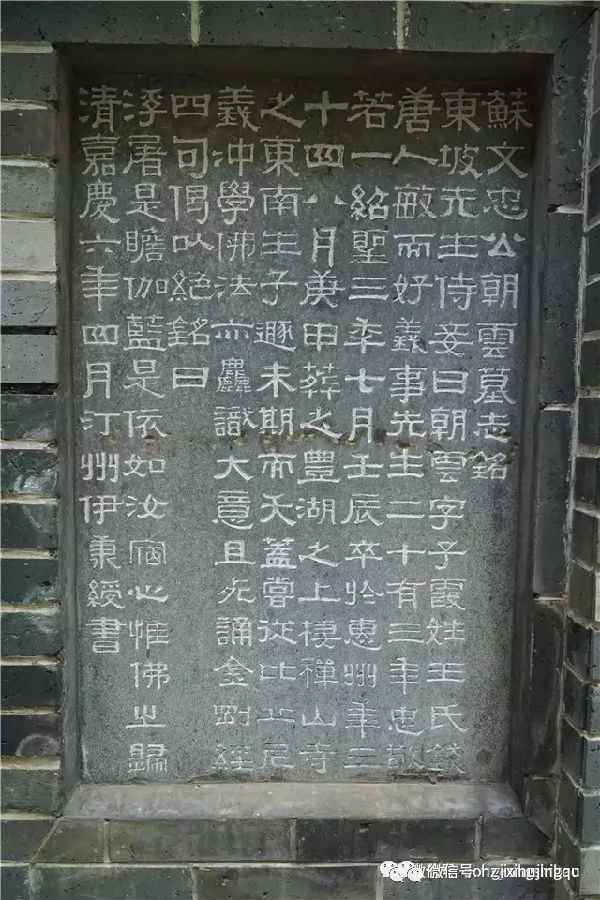 蘇文忠公朝雲墓志銘
東坡先生侍妾曰朝雲字子霞姓王氏錢
唐人敏而好義事先生二十有三年忠敬
若一紹聖三年七月壬辰卒於惠州年三
十四八月庚申葬之豐湖之上棲禪山寺
之東南生子遯未期而夭蓋嘗從比丘尼
義沖學佛法亦麤識大意且死誦金剛經
四句偈以絕銘曰
浮屠是瞻伽藍是依如汝宿心惟佛之歸
清嘉慶六年四月汀州伊秉綬書
微信号